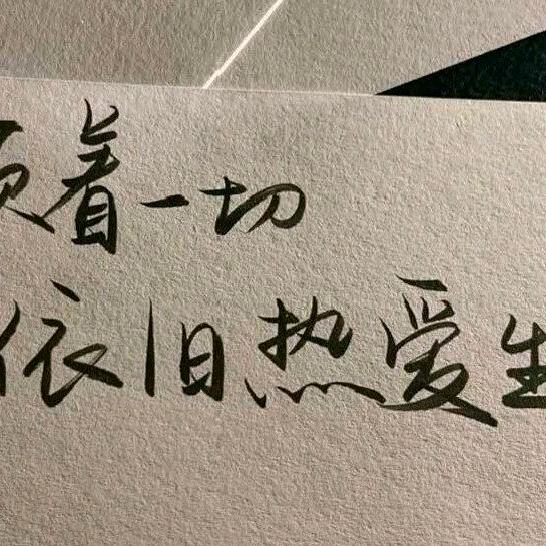 着一切
依旧热爱生